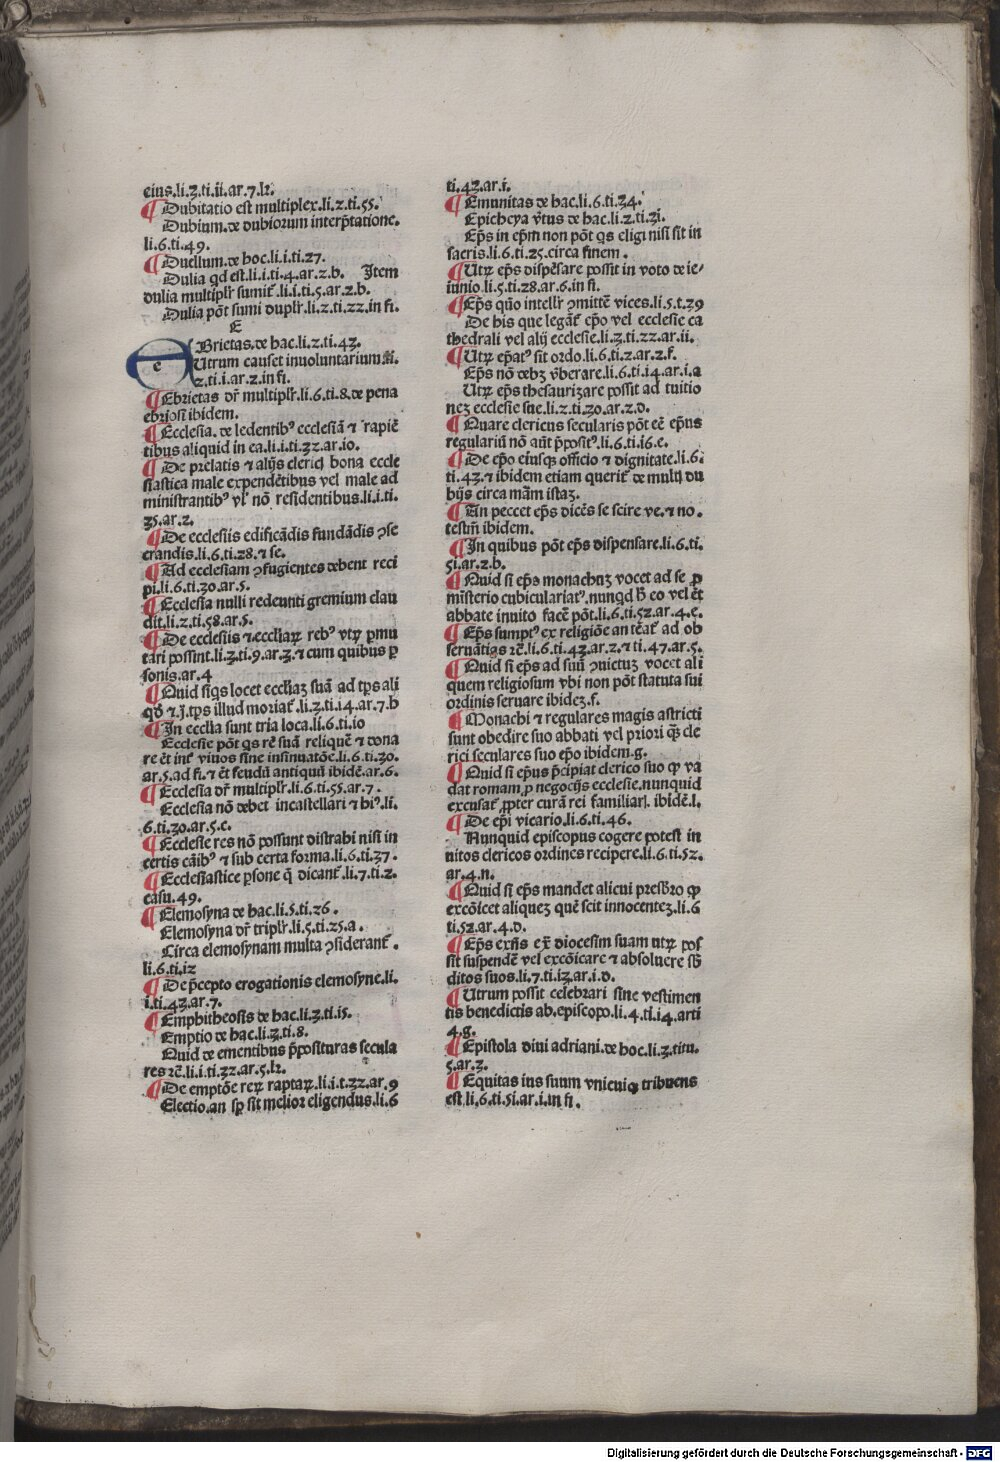 eius.li.3.ti.ii.ar.7.lr.
¶ Dubitatio est multiplex.li.2.ti.55.
Dubium.de dubiorum interp̃tatione.
li.6.ti.49.
¶ Duellum.de hoc.li.i.ti.27.
Dulia qd est.li.i.ti.4.ar.2.b. Item
dulia multiplr̃ sumit᷑.li.i.ti.5.ar.2.b.
Dulia põt sumi duplr̃.li.2.ti.22.in fi.
E
EBrietas.de hac.li.2.ti.43.
Utrum causet inuoluntarium.li.
2.ti.i.ar.2.in fi.
¶ Ebrietas dr̃ multiplr̃.li.6.ti.8.de pena
ebriosi ibidem.
¶ Ecclesia.de ledentibꝰ ecclesiã ⁊ rapiẽ
tibus aliquid in ea.li.i.ti.32.ar.io.
¶ De prelatis ⁊ alijs clericꝭ bona eccle
siastica male expendẽtibus vel male ad
ministrantibꝰ vl᷑ nõ residentibus.li.i.ti.
35.ar.2.
¶ De ecclesiis edificãdis fundãdis ꝯse
crandis.li.6.ti.28.⁊ se.
¶ Ad ecclesiam ꝯfugientes debent reci
pi.li.6.ti.30.ar.5.
¶ Ecclesia nulli redeunti gremium clau
dit.li.2.ti.58.ar.5.
¶ De ecclesiis ⁊ eccliaꝝ rebꝰ vtꝝ ꝑmu
tari possint.li.3.ti.9.ar.3.⁊ cum quibus ꝑ
sonis.ar.4
¶ Quid siqs locet eccliaʒ suã ad tp̃s ali
qđ ⁊.j.tp̃s illud moriat᷑.li.3.ti.i4.ar.7.b
¶ In ecclia sunt tria loca.li.6.ti.io
Ecclesie põt qs rẽ suã reliquẽ ⁊ dona
re ẽt int᷑ viuos sine insinuatõe.li.6.ti.30.
ar.5.ad fi.⁊ ẽt feudũ antiquũ ibidẽ.ar.6.
¶ Ecclesia dr̃ multiplr̃.li.6.ti.55.ar.7.
Ecclesia nõ debet incastellari ⁊ hiꝰ.li.
6.ti.30.ar.5.c.
¶ Ecclesie res nõ possunt distrahi nisi in
certis cãibꝰ ⁊ sub certa forma.li.6.ti.37.
¶ Ecclesiastice ꝑsone q̃ dicant᷑.li.7.ti.2.
casu.49.
¶ Elemosyna de hac.li.5.ti.26.
Elemosyna dr̃ triplr̃.li.5.ti.25.a.
Circa elemosynam multa ꝯsiderant᷑.
li.6.ti.i2
¶ De p̃cepto erogationis elemosyne.li.
i.ti.43.ar.7.
¶ Emphitheosis de hac.li.3.ti.i5.
Emptio de hac.li.3.ti.8.
Quid de ementibus p̃posituras secula
res rc̃.li.i.ti.32.ar.5.lr.
¶ De emptõe reꝝ raptaꝝ.li.i.t.32.ar.9
Electio.an sp̃ sit melior eligendus.li.6
ti.43.ar.i.
¶ Emunitas de hac.li.6.ti.34.
Epicheya v̾tus de hac.li.2.ti.3i.
Ep̃s in ep̃m non põt qs eligi nisi sit in
sacris.li.6.ti.25.circa finem.
¶ Utꝝ ep̃s dispẽsare possit in voto de ie/
iunio.li.5.ti.28.ar.6.in fi.
¶ Ep̃s qũo intellr̃ ꝯmittẽ vices.li.5.t.39
De his que legãt᷑ ep̃o vel ecclesie ca
thedrali vel alij ecclesie.li.3.ti.22.ar.ii.
¶ Utꝝ ep̃atꝰ sit ordo.li.6.ti.2.ar.2.f.
Ep̃s nõ debʒ v̾berare.li.6.ti.i4.ar.i.a
Utꝝ ep̃s thesaurizare possit ad tuitio
neʒ ecclesie sue.li.2.ti.30.ar.2.d.
¶ Quare clericus secularis põt eẽ ep̃us
regulariũ nõ aũt p̃positꝰ.li.6.ti.i6.e.
¶ De ep̃o eiusqꝫ officio ⁊ dignitate.li.6.
ti.43.⁊ ibidem etiam querit᷑ de multꝭ du
bijs circa mãm istaʒ.
¶ An peccet ep̃s dicẽs se scire ve.⁊ no.
testm̃ ibidem.
¶ In quibus põt ep̃s dispensare.li.6.ti.
5i.ar.2.b.
¶ Quid si ep̃s monachuʒ vocet ad se ꝓ
misterio cubiculariatꝰ.nunqd h̃ eo vel ẽt
abbate inuito facẽ põt.li.6.ti.52.ar.4.c.
¶ Ep̃s sumptꝰ ex religiõe an teat᷑ ad ob
seruãtias rc̃.li.6.ti.43.ar.2.⁊ ti.47.ar.5.
¶ Quid si ep̃s ad suũ ꝯuictuʒ vocet ali
quem religiosum vbi non põt statuta sui
ordinis seruare ibideʒ.f.
¶ Monachi ⁊ regulares magis astricti
sunt obedire suo abbati vel priori qꝫ cle
rici seculares suo ep̃o ibidem.g.
¶ Quid si ep̃us p̃cipiat clerico suo ꝙ va
dat romam ꝓ negocijs ecclesie.nunquid
excusat᷑ ꝓpter curã rei familiarꝭ. ibidẽ.l.
¶ De ep̃i vicario.li.6.ti.46.
Nunquid episcopus cogere potest in
uitos clericos ordines recipere.li.6.ti.52.
ar.4.n.
¶ Quid si ep̃s mandet alicui presbr̃o ꝙ
excõicet aliqueʒ quẽ scit innocenteʒ.li.6
ti.52.ar.4.d.
¶ Ep̃s exñs ex̃ diocesim suam utꝝ pos
sit suspendẽ vel excõicare ⁊ absoluere sb̃
ditos suos.li.7.ti.i3.ar.i.d.
¶ Utrum possit celebrari sine vestimen
tis benedictis ab.episcopo.li.4.ti.i4.arti
4.g.
¶ Epistola diui adriani.de hoc.li.3.titu.
5.ar.3.
¶ Equitas ius suum vnicuiqꝫ tribuens
est.li.6.ti.5i.ar.i.in fi.
Digitalisierung gefördert durch die Deutsche Forschungsgemeinschaft - DFG